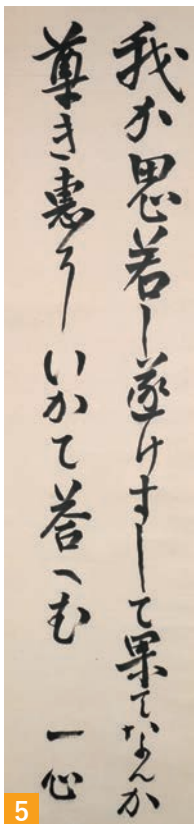 我か思若し遂けすして果てなんか
尊き恵にいかて答へむ 一心
5